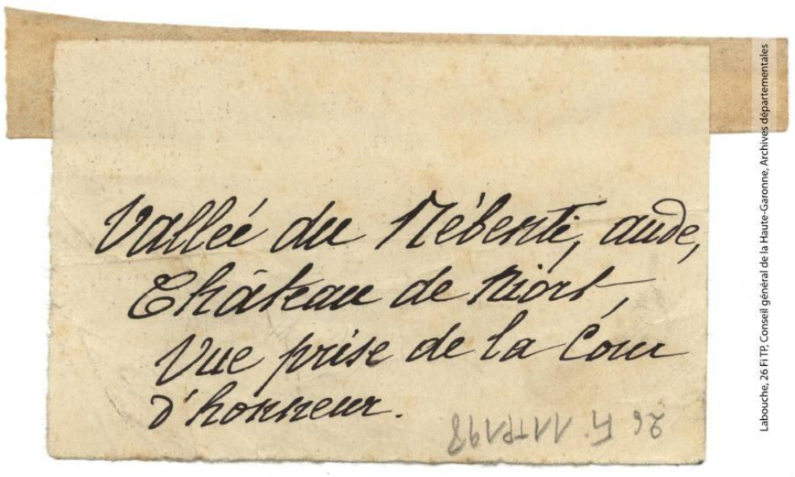 Vallée du Rébenti, aude,
Château de Niort,
Vue prise de la Cour
d'honneur.
26 Fi 11TP198
Labouche, 26 Fi TP, Conseil général de la Haute-Garonne, Archives départementales